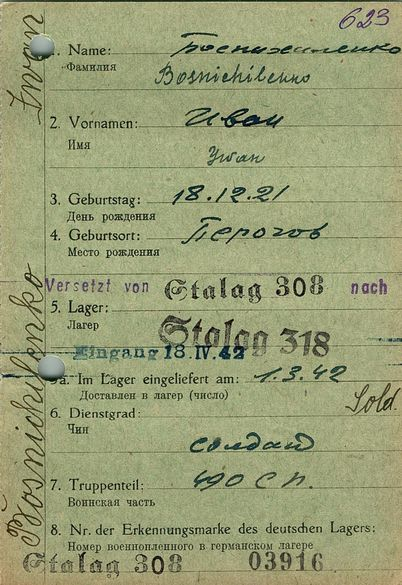 623
1. Name: Боснихиленко
Фамилия
Bosnichilenno
2. Vornamen: Иван
Имя
Iwan
3. Geburtstag: 18.12.21
День рождения
4. Geburtsort: Перогов
Место рождения
Versetzt von Stalag 308 nach
5. Lager: Stalag 318
Лагер
Eingang 18. IV. 42
5a. Im Lager eingeliefert am: 1.3.42
Доставлен в лагер (число)
6. Dienstgrad: Sold.
Чин
солдат
7. Truppenteil: 490 С.П.
Воинская часть
8. Nr. der Erkennungsmarke des deutschen Lagers:
Номер военнопленного в германском лагере
Stalag 308 03916
Bosnichilenko Iwan